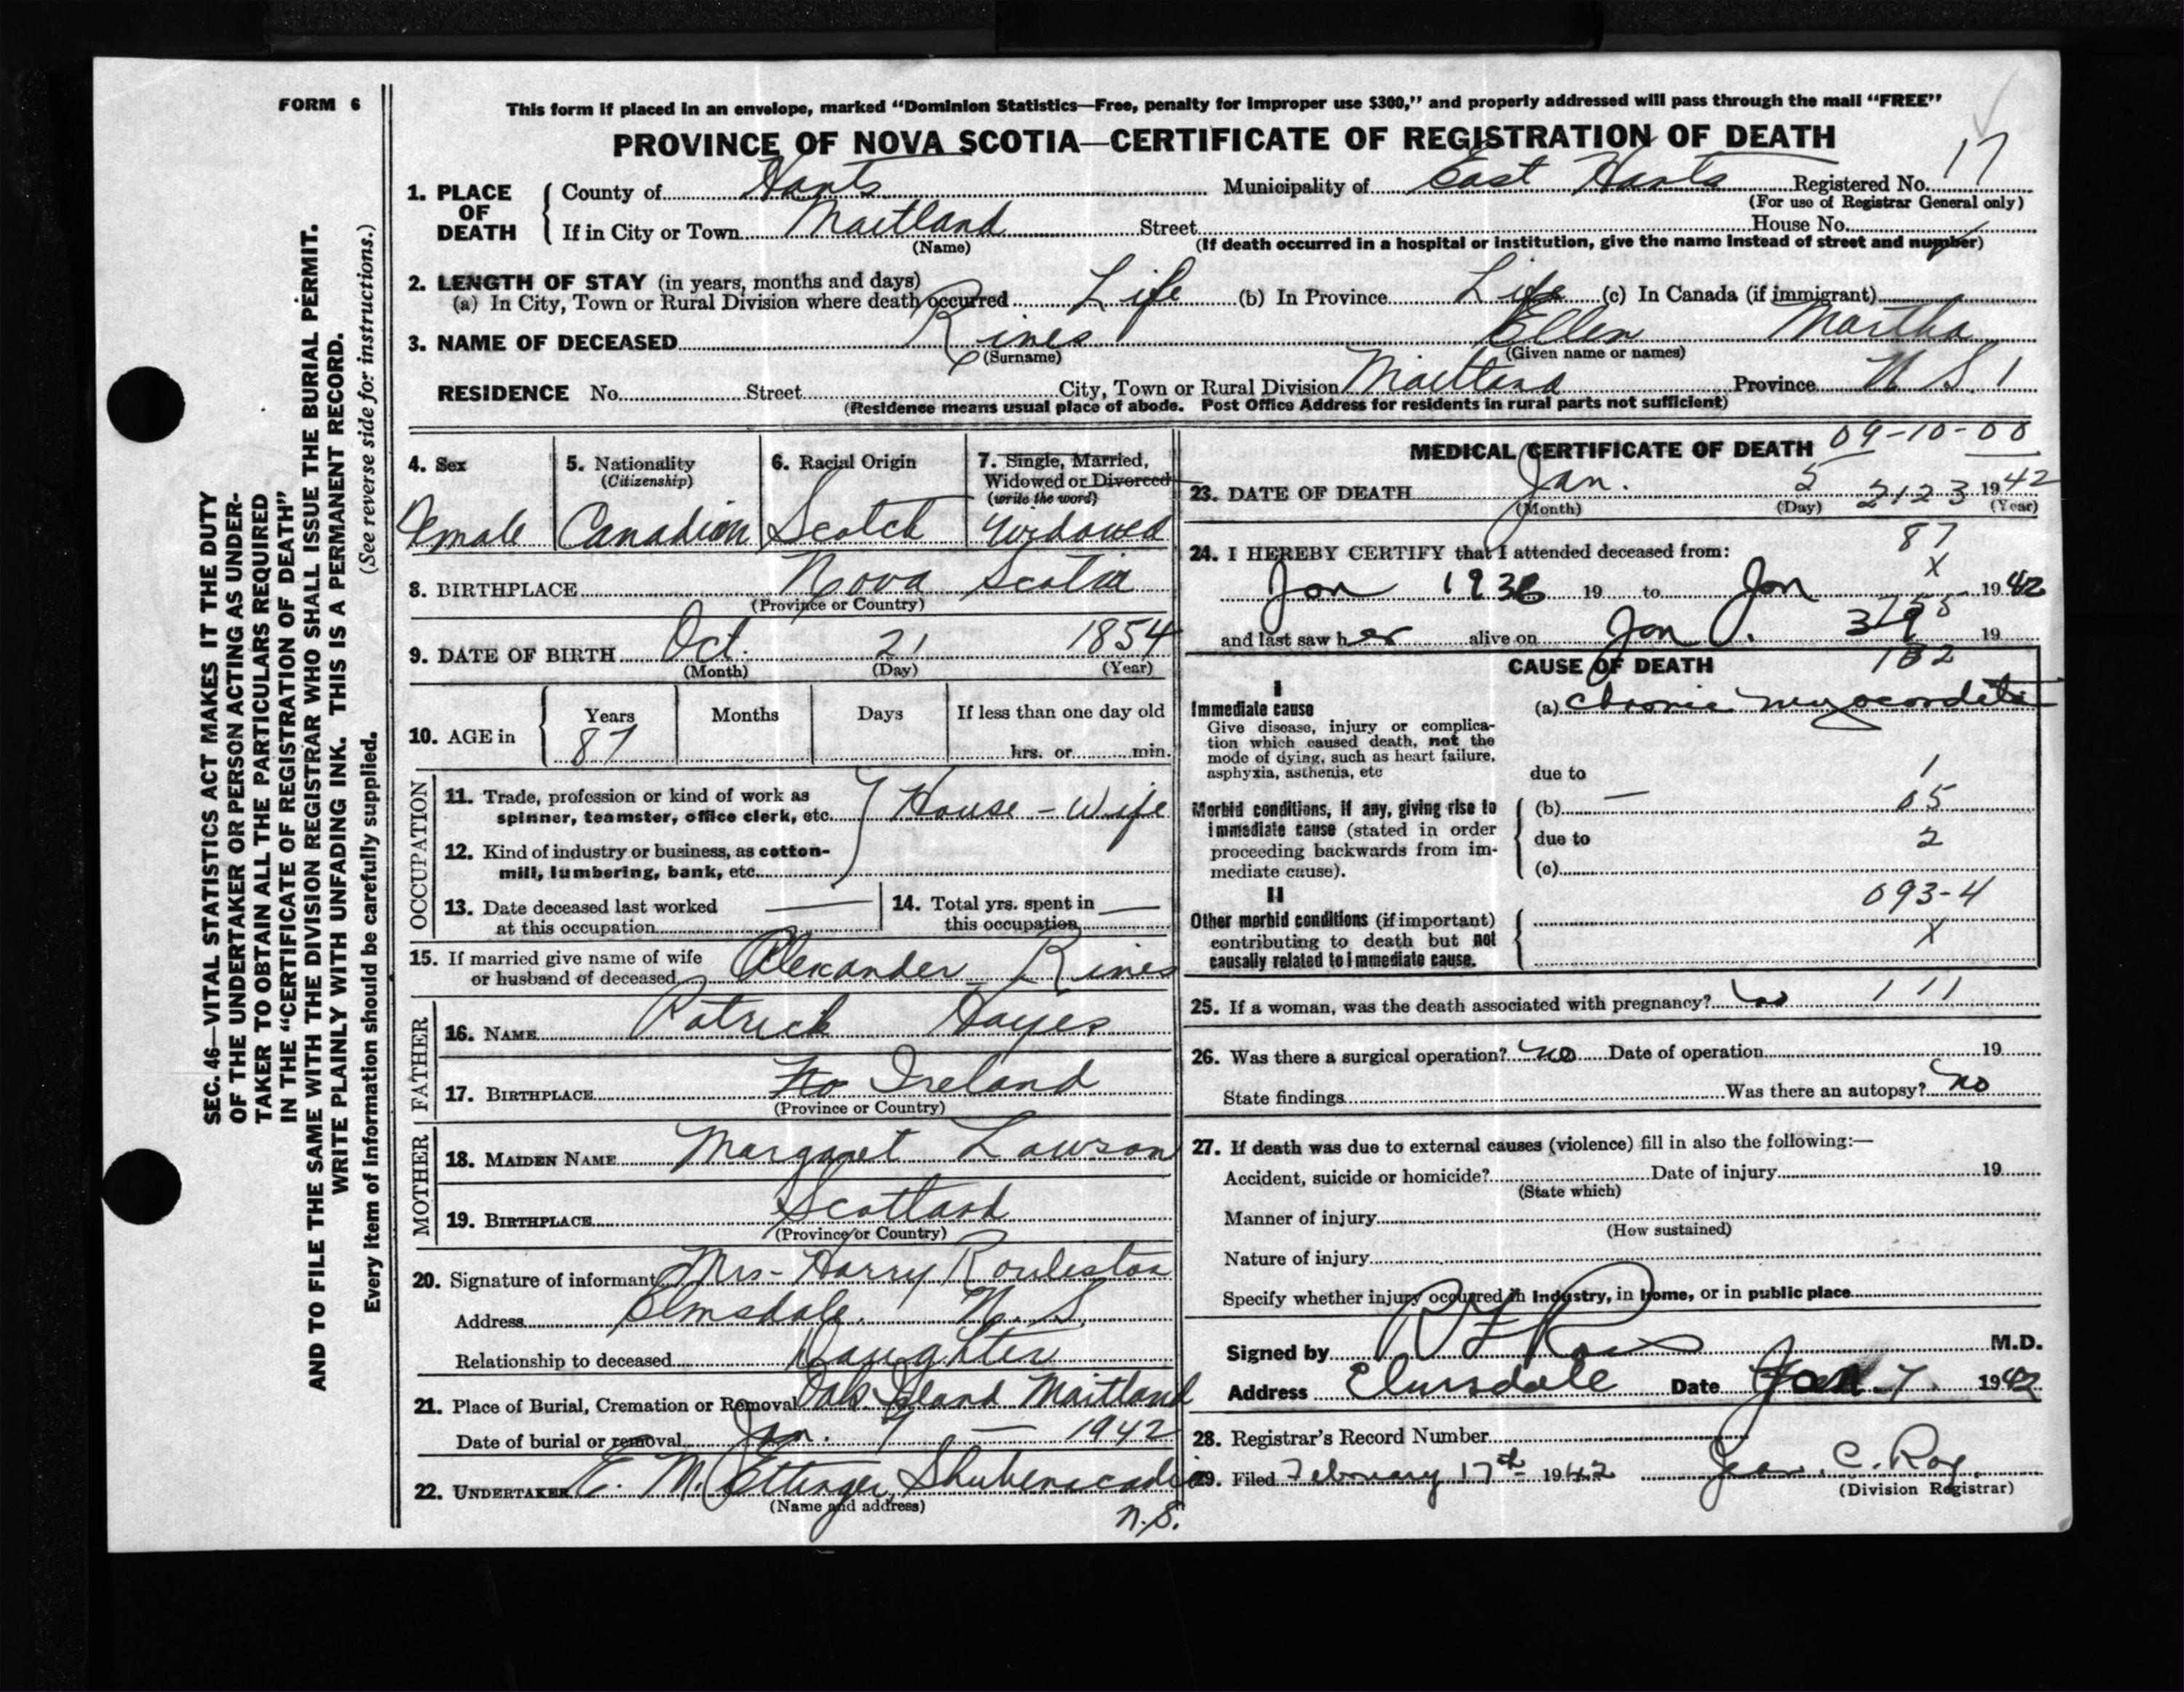 FORM 6
SEC. 46—VITAL STATISTICS ACT MAKES IT THE DUTY
OF THE UNDERTAKER OR PERSON ACTING AS UNDER-
TAKER TO OBTAIN ALL THE PARTICULARS REQUIRED
IN THE "CERTIFICATE OF REGISTRATION OF DEATH"
AND TO FILE THE SAME WITH THE DIVISION REGISTRAR WHO SHALL ISSUE THE BURIAL PERMIT.
WRITE PLAINLY WITH UNFADING INK. THIS IS A PERMANENT RECORD.
(See reverse side for instructions.)
Every item of information should be carefully supplied.
This form if placed in an envelope, marked "Dominion Statistics—Free, penalty for improper use $300," and properly addressed will pass through the mail "FREE"
PROVINCE OF NOVA SCOTIA—CERTIFICATE OF REGISTRATION OF DEATH
1. PLACE OF DEATH County of Hants Municipality of East Hants Registered No. 17
(For use of Registrar General only)
If in City or Town Maitland Street House No.
(Name) (If death occurred in a hospital or institution, give the name instead of street and number)
2. LENGTH OF STAY (in years, months and days)
(a) In City, Town or Rural Division where death occurred Life (b) In Province Life (c) In Canada (if immigrant)
3. NAME OF DECEASED Rines Ellen Martha
(Surname) (Given name or names)
RESIDENCE No. Street City, Town or Rural Division Maitland Province N S 1
(Residence means usual place of abode. Post Office Address for residents in rural parts not sufficient)
4. Sex 5. Nationality (Citizenship) 6. Racial Origin 7. Single, Married, Widowed or Divorced (write the word)
Female Canadian Scotch Widowed
8. BIRTHPLACE Nova Scotia
(Province or Country)
9. DATE OF BIRTH Oct. 21 1854
(Month) (Day) (Year)
10. AGE in Years Months Days If less than one day old
87 hrs. or min.
OCCUPATION
11. Trade, profession or kind of work as
spinner, teamster, office clerk, etc. House-Wife
12. Kind of industry or business, as cotton-
mill, lumbering, bank, etc.
13. Date deceased last worked
at this occupation —
14. Total yrs. spent in
this occupation —
15. If married give name of wife
or husband of deceased Alexander Rines
FATHER
16. NAME Patrick Hayes
17. BIRTHPLACE No Ireland
(Province or Country)
MOTHER
18. MAIDEN NAME Margaret Lawson
19. BIRTHPLACE Scotland
(Province or Country)
20. Signature of informant Mrs- Harry Rouleston
Address Elmsdale. N. S.
Relationship to deceased Daughter
21. Place of Burial, Cremation or Removal Oak Island Maitland
Date of burial or removal Jan. 7 — 1942
22. UNDERTAKER E. M. Ettinger, Shubenacadie
(Name and address) N.S.
MEDICAL CERTIFICATE OF DEATH 09-10-00
23. DATE OF DEATH Jan. 5 2123 1942
(Month) (Day) (Year)
24. I HEREBY CERTIFY that I attended deceased from: 87
X
Jan 1936 19 to Jan 1942
and last saw her alive on Jan 3 19
CAUSE OF DEATH
I
Immediate cause
Give disease, injury or complica-
tion which caused death, not the
mode of dying, such as heart failure,
asphyxia, asthenia, etc
(a) chronic myocarditis
due to 1
Morbid conditions, if any, giving rise to
immediate cause (stated in order
proceeding backwards from im-
mediate cause).
(b) — 05
due to 2
(c)
II 093-4
Other morbid conditions (if important)
contributing to death but not
causally related to immediate cause.
X
25. If a woman, was the death associated with pregnancy? no 111
26. Was there a surgical operation? no Date of operation 19
State findings Was there an autopsy? no
27. If death was due to external causes (violence) fill in also the following:—
Accident, suicide or homicide? Date of injury 19
(State which)
Manner of injury
(How sustained)
Nature of injury
Specify whether injury occurred in industry, in home, or in public place
Signed by M.D.
Address Elmsdale Date Jan. 7. 1942
28. Registrar's Record Number
29. Filed February 17th 1942 Jean C. Roy.
(Division Registrar)